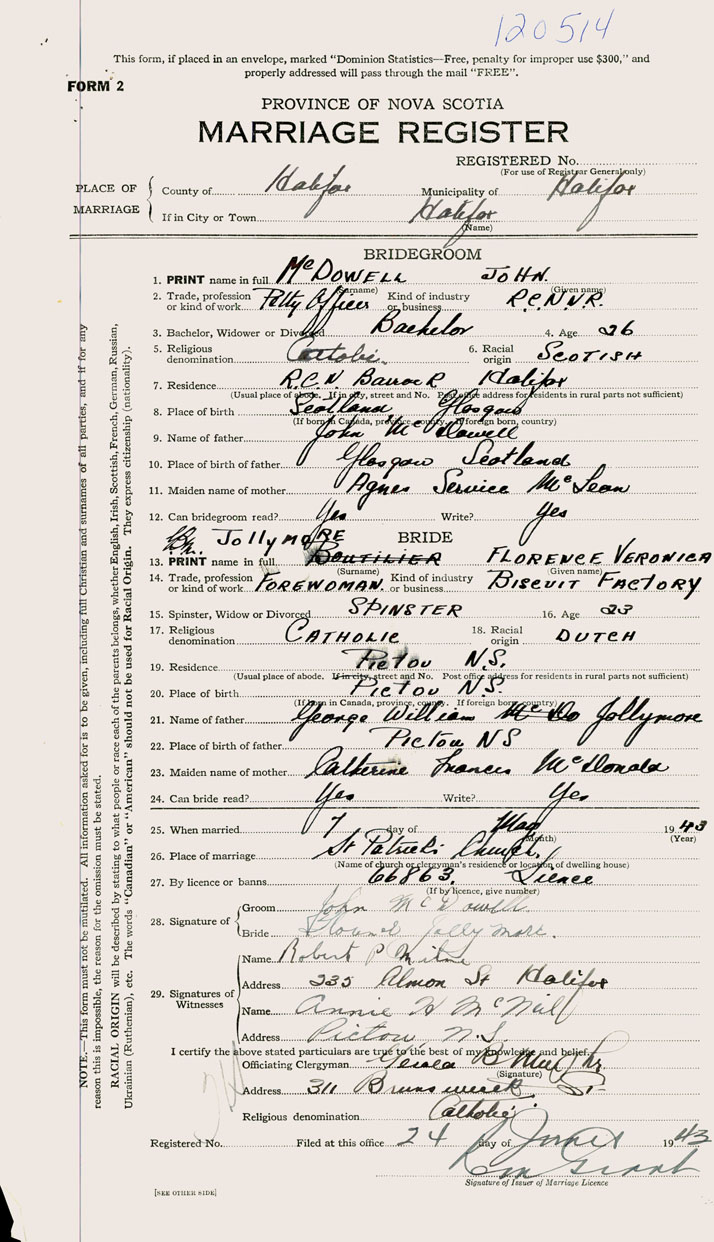 120514
This form, if placed in an envelope, marked "Dominion Statistics—Free, penalty for improper use $300," and
properly addressed will pass through the mail "FREE".
FORM 2
PROVINCE OF NOVA SCOTIA
MARRIAGE REGISTER
REGISTERED No.
(For use of Registrar General only)
PLACE OF MARRIAGE
County of Halifax Municipality of Halifax
If in City or Town Halifax
(Name)
BRIDEGROOM
1. PRINT name in full McDOWELL JOHN
(Surname) (Given name)
2. Trade, profession or kind of work Petty Officer Kind of industry or business R.C.N.V.R.
3. Bachelor, Widower or Divorced Bachelor 4. Age 26
5. Religious denomination Catholic 6. Racial origin SCOTISH
7. Residence R.C.N Barrack Halifax
(Usual place of abode. If in city, street and No. Post office address for residents in rural parts not sufficient)
8. Place of birth Scotland Glasgow
(If born in Canada, province, county. If foreign born, country)
9. Name of father John McDowell
10. Place of birth of father Glasgow Scotland
11. Maiden name of mother Agnes Service McLean
12. Can bridegroom read? Yes Write? Yes
BRIDE
JollymoRE
13. PRINT name in full BOUTILIER FLORENCE VERONICA
(Surname) (Given name)
14. Trade, profession or kind of work FOREWOMAN. Kind of industry or business BISCUIT FACTORY
15. Spinster, Widow or Divorced SPINSTER 16. Age 23
17. Religious denomination CATHOLIC 18. Racial origin DUTCH
19. Residence PICTOU N.S.
(Usual place of abode. If in city, street and No. Post office address for residents in rural parts not sufficient)
20. Place of birth PICTOU N.S.
(If born in Canada, province, county. If foreign born, country)
21. Name of father George William McDo Jollymore
22. Place of birth of father PICTOU NS
23. Maiden name of mother Catherine Frances McDonald
24. Can bride read? Yes Write? Yes
25. When married 7 day of May 1943
(Month) (Year)
26. Place of marriage St Patrick's Church.
(Name of church or clergyman's residence or location of dwelling house)
27. By licence or banns 66863.
(If by licence, give number)
28. Signature of
Groom John McDowell.
Bride Jollymore.
29. Signatures of Witnesses
Name Robert P Milne
Address 235 Almon St Halifax
Name Annie H McNeil
Address Pictou N.S
I certify the above stated particulars are true to the best of my knowledge and belief.
Officiating Clergyman
(Signature)
Address 311 Brunswick St
Religious denomination Catholic
Registered No. Filed at this office 24 day of 1943
Signature of Issuer of Marriage Licence
[SEE OTHER SIDE]
NOTE.—This form must not be mutilated. All information asked for is to be given, including full Christian and surnames of all parties, and if for any
reason this is impossible, the reason for the omission must be stated.
RACIAL ORIGIN will be described by stating to what people or race each of the parents belongs, whether English, Irish, Scottish, French, German, Russian,
Ukrainian (Ruthenian), etc. The words "Canadian" or "American" should not be used for Racial Origin. They express citizenship (nationality).